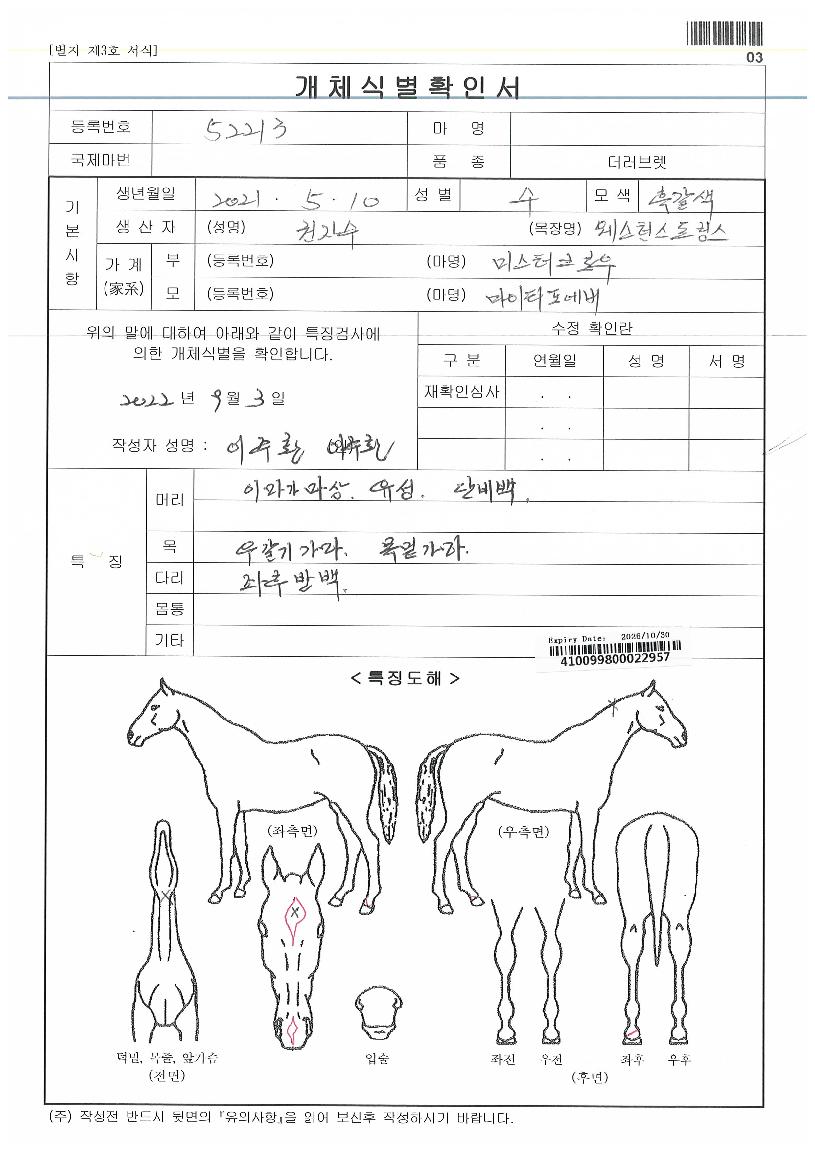 [별지 제3호 서식]
03
개체식별확인서
등록번호 52213 마 명
국제마번 품 종 더러브렛
기본사항
생년월일 2021 . 5 . 10 성 별 수 모 색 흑갈색
생 산 자 (성명) (목장명)
가 계 (家系) 부 (등록번호) (마명) 미스터크로우
모 (등록번호) (마명) 마이티포네버
위의 말에 대하여 아래와 같이 특징검사에
의한 개체식별을 확인합니다.
2022 년 9 월 3 일
작성자 성명 : 이주환
수정 확인란
구 분 연월일 성 명 서 명
재확인심사 . .
. .
. .
특 징
머리 이마가마상. 유성. 단비백.
목 우갈기가마. 목밑가마.
다리 좌후발백.
몸통
기타
Expiry Date: 2026/10/30
410099800022957
< 특징도해 >
(좌측면) (우측면)
턱밑, 목줄, 앞가슴
(전면)
입술
좌전 우전 좌후 우후
(후면)
(주) 작성전 반드시 뒷면의 『유의사항』을 읽어 보신후 작성하시기 바랍니다.